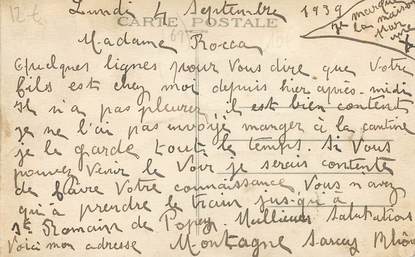 12 €
Lundi 4 Septembre 1939
je marque
la maison
par
une
CARTE POSTALE
Madame Rocca
Quelques lignes pour vous dire que votre
fils est chez moi depuis hier après-midi
Il n'a pas pleurer, il est bien content
je ne l'ai pas envoyé manger à la cantine
je le garde tout le temps. Si Vous
pouvez venir le Voir je serais contente
de faire Votre connaissance, Vous n'avez
qu'à prendre le train jus-qu'à
St Romain de Popey. Meilleures Salutations
Voici mon adresse Montagne Sarcey Rhône